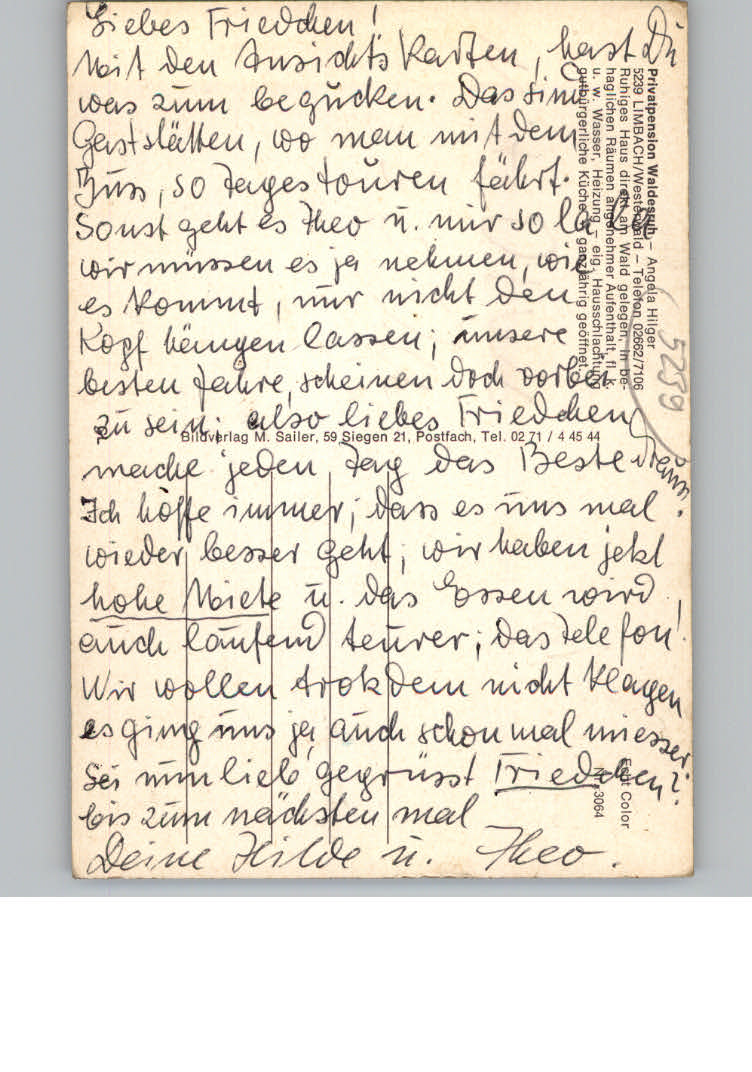 Liebes Friedchen!
Mit den Ansichts Karten, hast Du
was zum begucken. Das sind
Gaststätten, wo man mit dem
Bus, so Tagestouren fährt.
Sonst geht es Theo u. mir so la la
wir müssen es ja nehmen, wie
es kommt, nur nicht den
Kopf hängen lassen; unsere
besten Jahre, scheinen doch vorbei
zu sein; also liebes Friedchen
mache jeden Tag das Beste draus.
Ich hoffe immer, dass es uns mal
wieder besser geht, wir haben jetzt
hohe Miete u. das Essen wird
auch laufend teurer; das Telefon!
Wir wollen trotzdem nicht klagen
es ging uns ja, auch schon mal mieser.
Sei nun lieb gegrüsst Friedchen!
bis zum nächsten mal
Deine Hilde u. Theo.
Privatpension Waldesruh – Angela Hilger
5239 LIMBACH/Westerwald – Telefon 02662/7106
Ruhiges Haus direkt am Wald gelegen, in be-
haglichen Räumen angenehmer Aufenthalt, fl. k.
u. w. Wasser, Heizung – eig. Hausschlachtung
gutbürgerliche Küche – ganzjährig geöffnet.
5239
Bildverlag M. Sailer, 59 Siegen 21, Postfach, Tel. 02 71 / 4 45 44
Color
3064